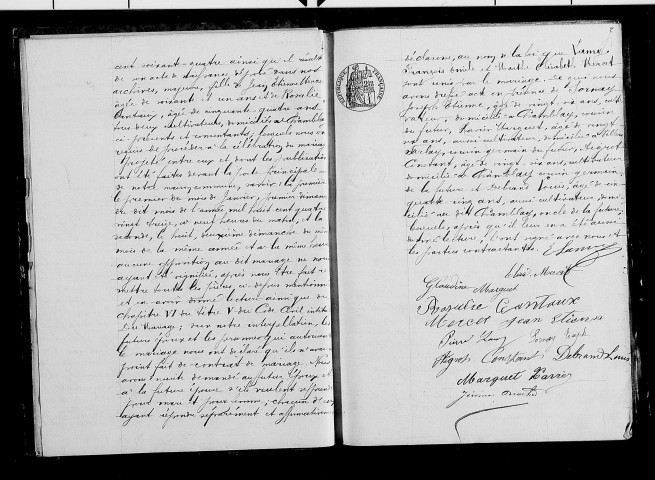 cent soixante-quatre ainsi qu'il résulte
de son acte de naissance déposé dans nos
archives, majeure, fille de Jean Etienne
âgé de soixante et un ans et de Rosalie
Contaux, âgée de cinquante quatre ans,
tous deux cultivateurs, domiciliés à Chamblay
ci présents et consentants, lesquels nous ont
requis de procéder à la célébration du mariage
projeté entre eux et dont les publications
ont été faites devant la porte principale
de notre maison commune, savoir : la première
le premier du mois de Janvier, premier dimanche
du dit mois de l'année mil huit cent quatre
vingt treize, à neuf heures du matin, et la
seconde, le huit, deuxième dimanche du même
mois de la même année et à la même heure
aucune opposition au dit mariage ne nous
ayant été signifiée, après nous être fait
mettre toutes les pièces ci-dessus mentionnées
et en avoir donné lecture ainsi que du
chapitre VI du titre V du Code Civil intitulé
du Mariage ; sur notre interpellation, les
futurs époux et les personnes qui autorisent
le mariage nous ont déclaré qu'il n'avait
point fait de contrat de mariage. Nous
avons ensuite demandé au futur époux et
à la future épouse s'ils veulent se prendre
pour mari et pour femme ; chacun d'eux
ayant répondu séparément et affirmativement
déclarons, au nom de la loi que
François Emile et Marthe Elisabeth
sont unis par le mariage. De quoi nous
avons dressé acte en présence de Jornay
Joseph Etienne, âgé de vingt six ans,
domicilié à Chamblay, cousin
du futur, Xavier Marguet, âgé de vingt
ans, aussi cultivateur, domicilié à
cousin germain du futur,
Constant, âgé de vingt six ans, cultivateur
domicilié à Chamblay, cousin germain
de la future et Delrand Louis, âgé de
quatre ans, aussi cultivateur,
au dit Chamblay, oncle de la future,
lesquels, après qu'il leur en a été aussi
donné lecture, l'ont signé avec nous et
les parties contractantes.
Claudine Marguet
Contaux
Jean Etienne
Constant Delrand Louis
Marguet Xavier